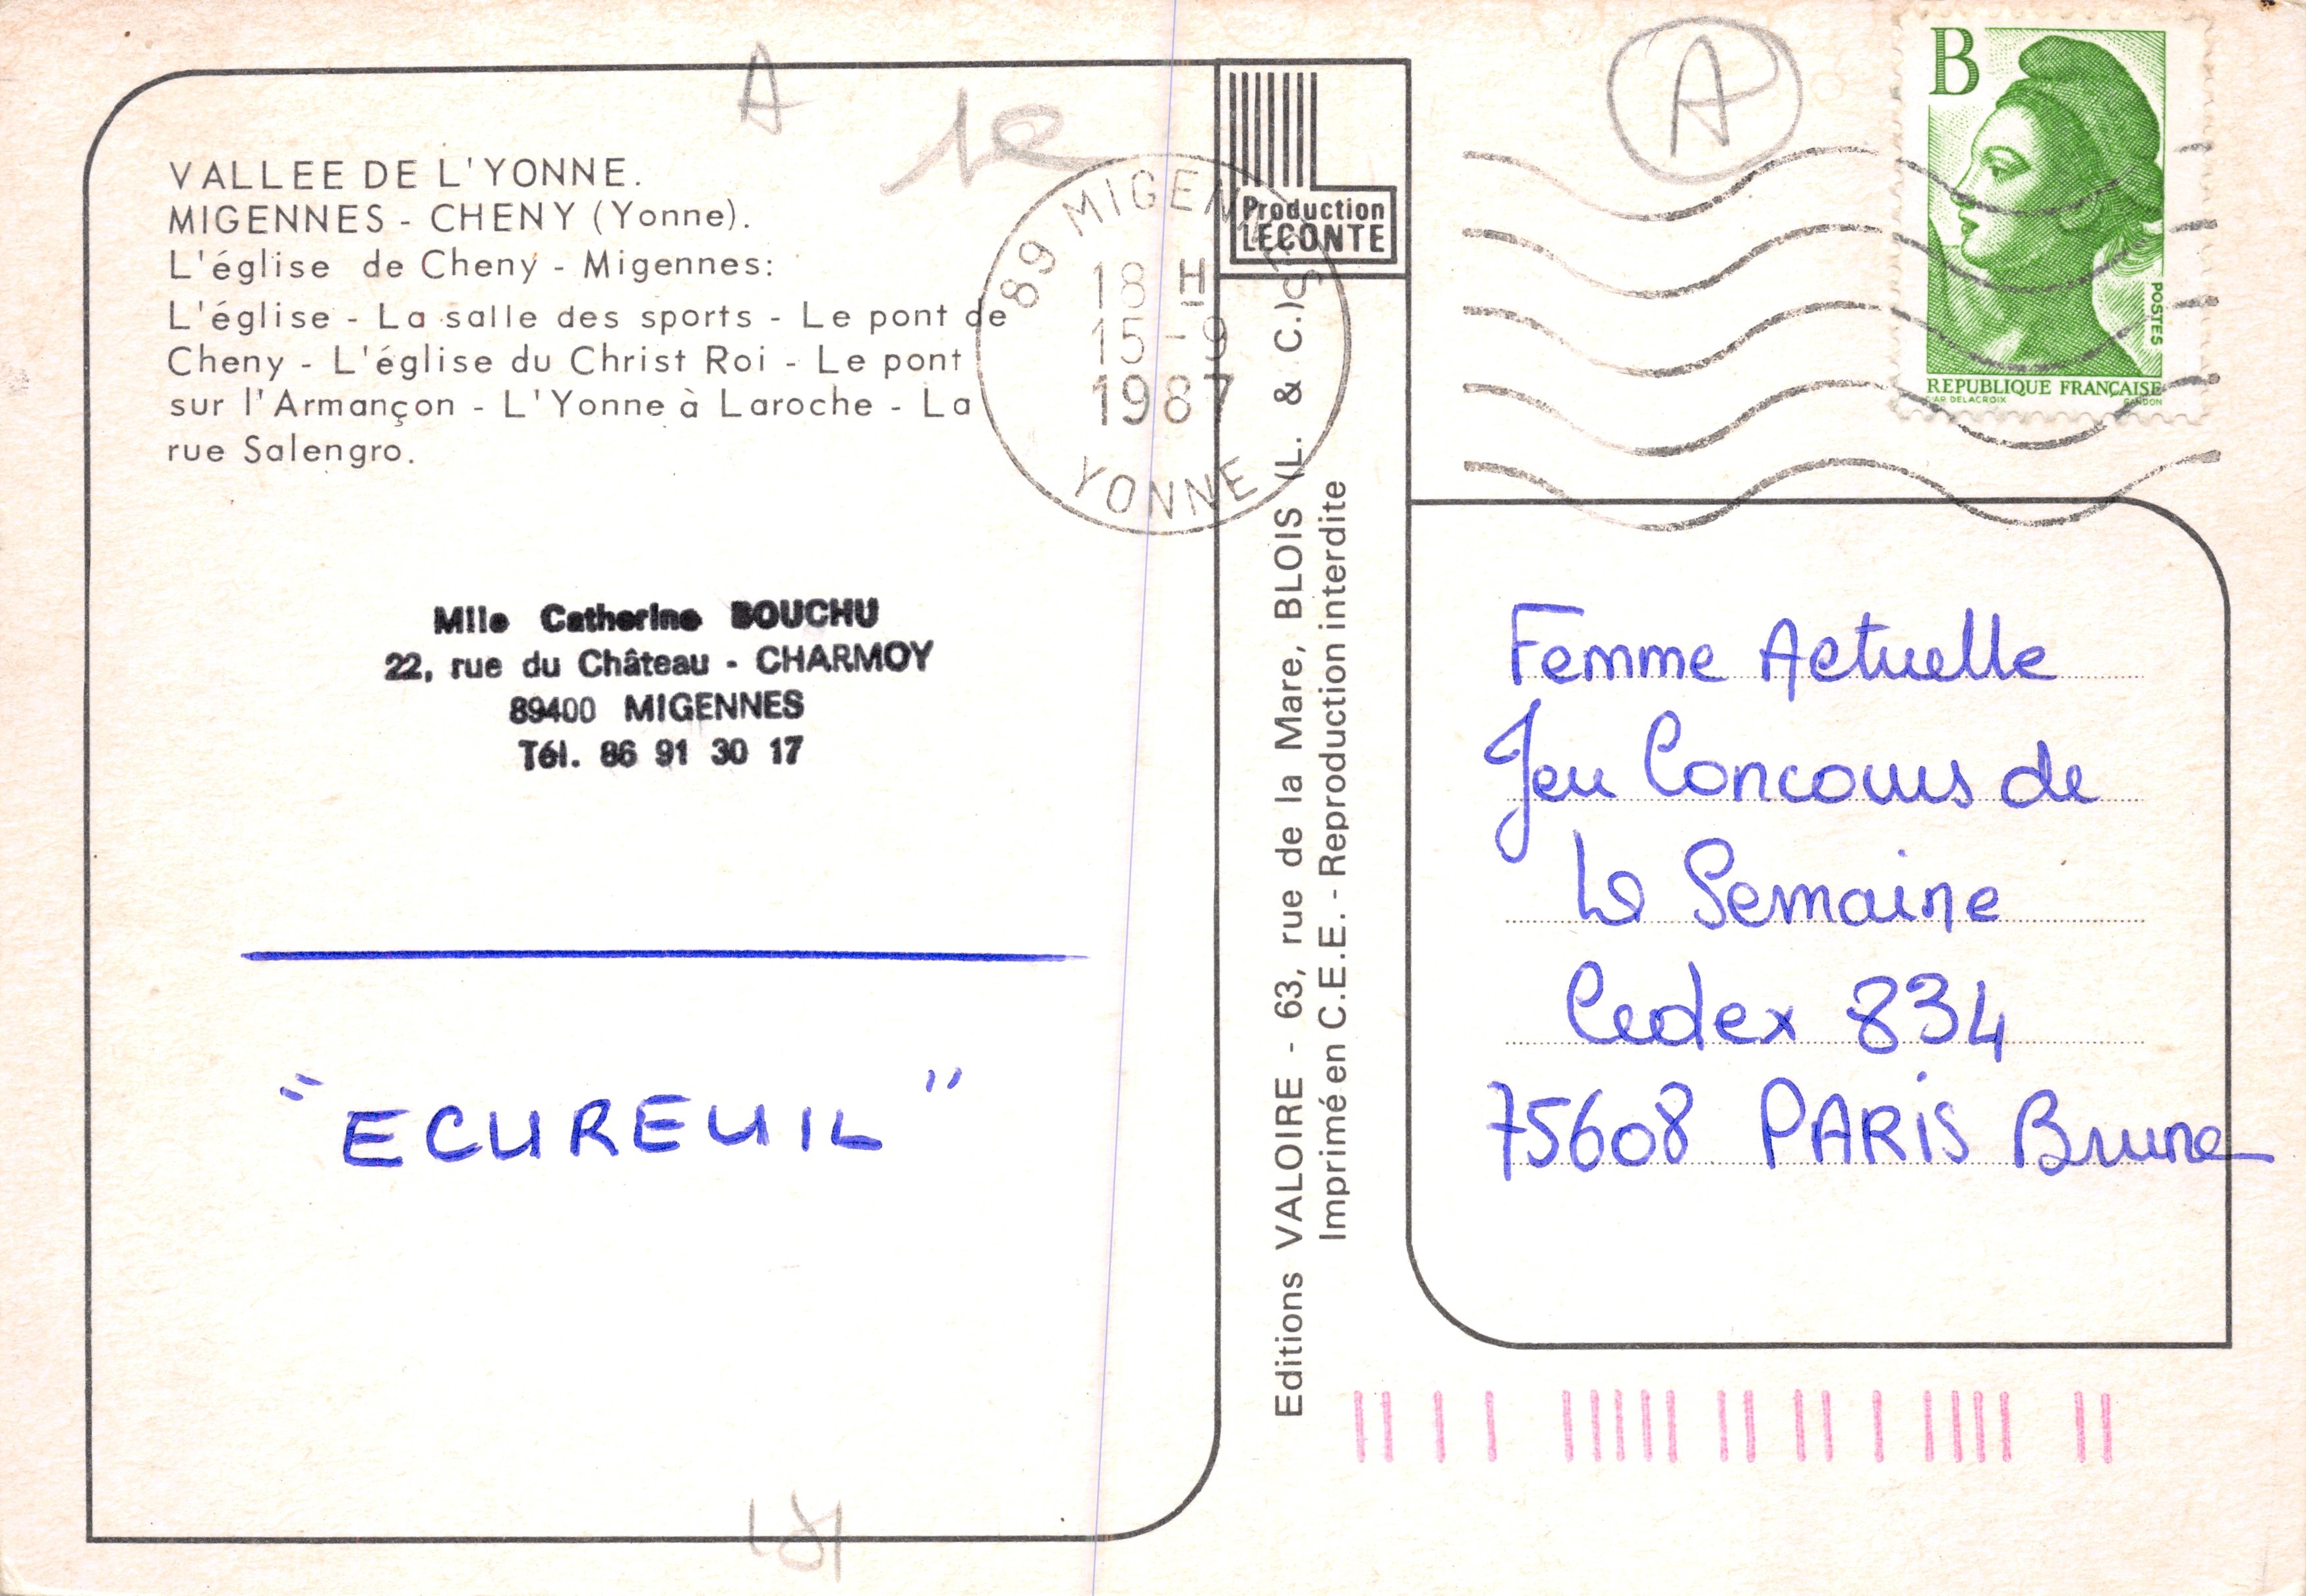 VALLEE DE L'YONNE.
MIGENNES - CHENY (Yonne).
L'église de Cheny - Migennes:
L'église - La salle des sports - Le pont de
Cheny - L'église du Christ Roi - Le pont
sur l'Armançon - L'Yonne à Laroche - La
rue Salengro.
A
1€
89 MIGENNES
18 H
15-9
1987
YONNE
Production
LECONTE
A
B
POSTES
REPUBLIQUE FRANÇAISE
D'AP. DELACROIX GANDON
Mlle Catherine BOUCHU
22, rue du Château - CHARMOY
89400 MIGENNES
Tél. 86 91 30 17
"ECUREUIL"
Editions VALOIRE - 63, rue de la Mare, BLOIS (L. & C.)
Imprimé en C.E.E. - Reproduction interdite
Femme Actuelle
Jeu Concours de
la Semaine
Cedex 834
75608 PARIS Brune